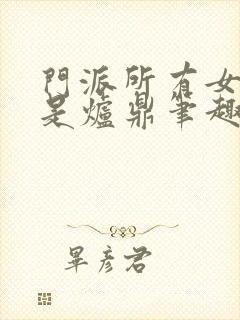 門派所有女
是爐鼎筆趣
畢彥君